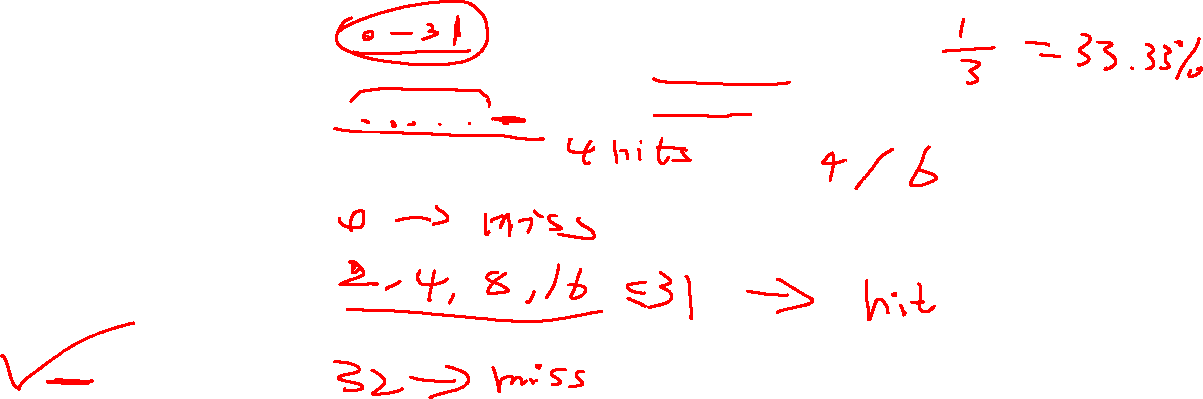 0 - 31
1/3 = 33.33%
4 hits
4/6
0 → miss
2, 4, 8, 16 ≤ 31 → hit
32 → miss